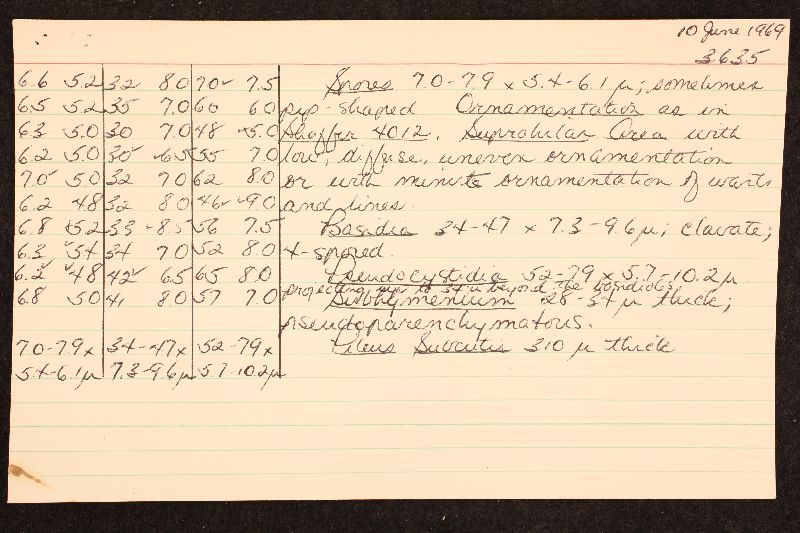 10 June 1969
3635
6.6 5.2 32 8.0 70 7.5 Spores 7.0-7.9 x 5.4-6.1 µ; sometimes
6.5 5.2 35 7.0 60 6.0 pip-shaped Ornamentation as in
6.3 5.0 30 7.0 48 5.0 Shaffer 4012. Suprahilar Area with
6.2 5.0 30 6.5 55 7.0 low, diffuse, uneven ornamentation
7.0 5.0 32 7.0 62 8.0 or with minute ornamentation of warts
6.2 4.8 32 8.0 46 9.0 and lines.
6.8 5.2 33 8.5 56 7.5 Basidia 34-47 x 7.3-9.6 µ; clavate;
6.3 5.4 34 7.0 52 8.0 4-spored.
6.2 4.8 42 6.5 65 8.0 Pseudocystidia 52-79 x 5.7-10.2 µ
projecting up to 34 µ beyond the basidioles
6.8 5.0 41 8.0 57 7.0 Subhymenium 28-34 µ thick;
pseudoparenchymatous.
7.0-7.9 x 34-47 x 52-79 x Pileus Subcutis 310 µ thick
5.4-6.1 µ 7.3-9.6 µ 5.7-10.2 µ